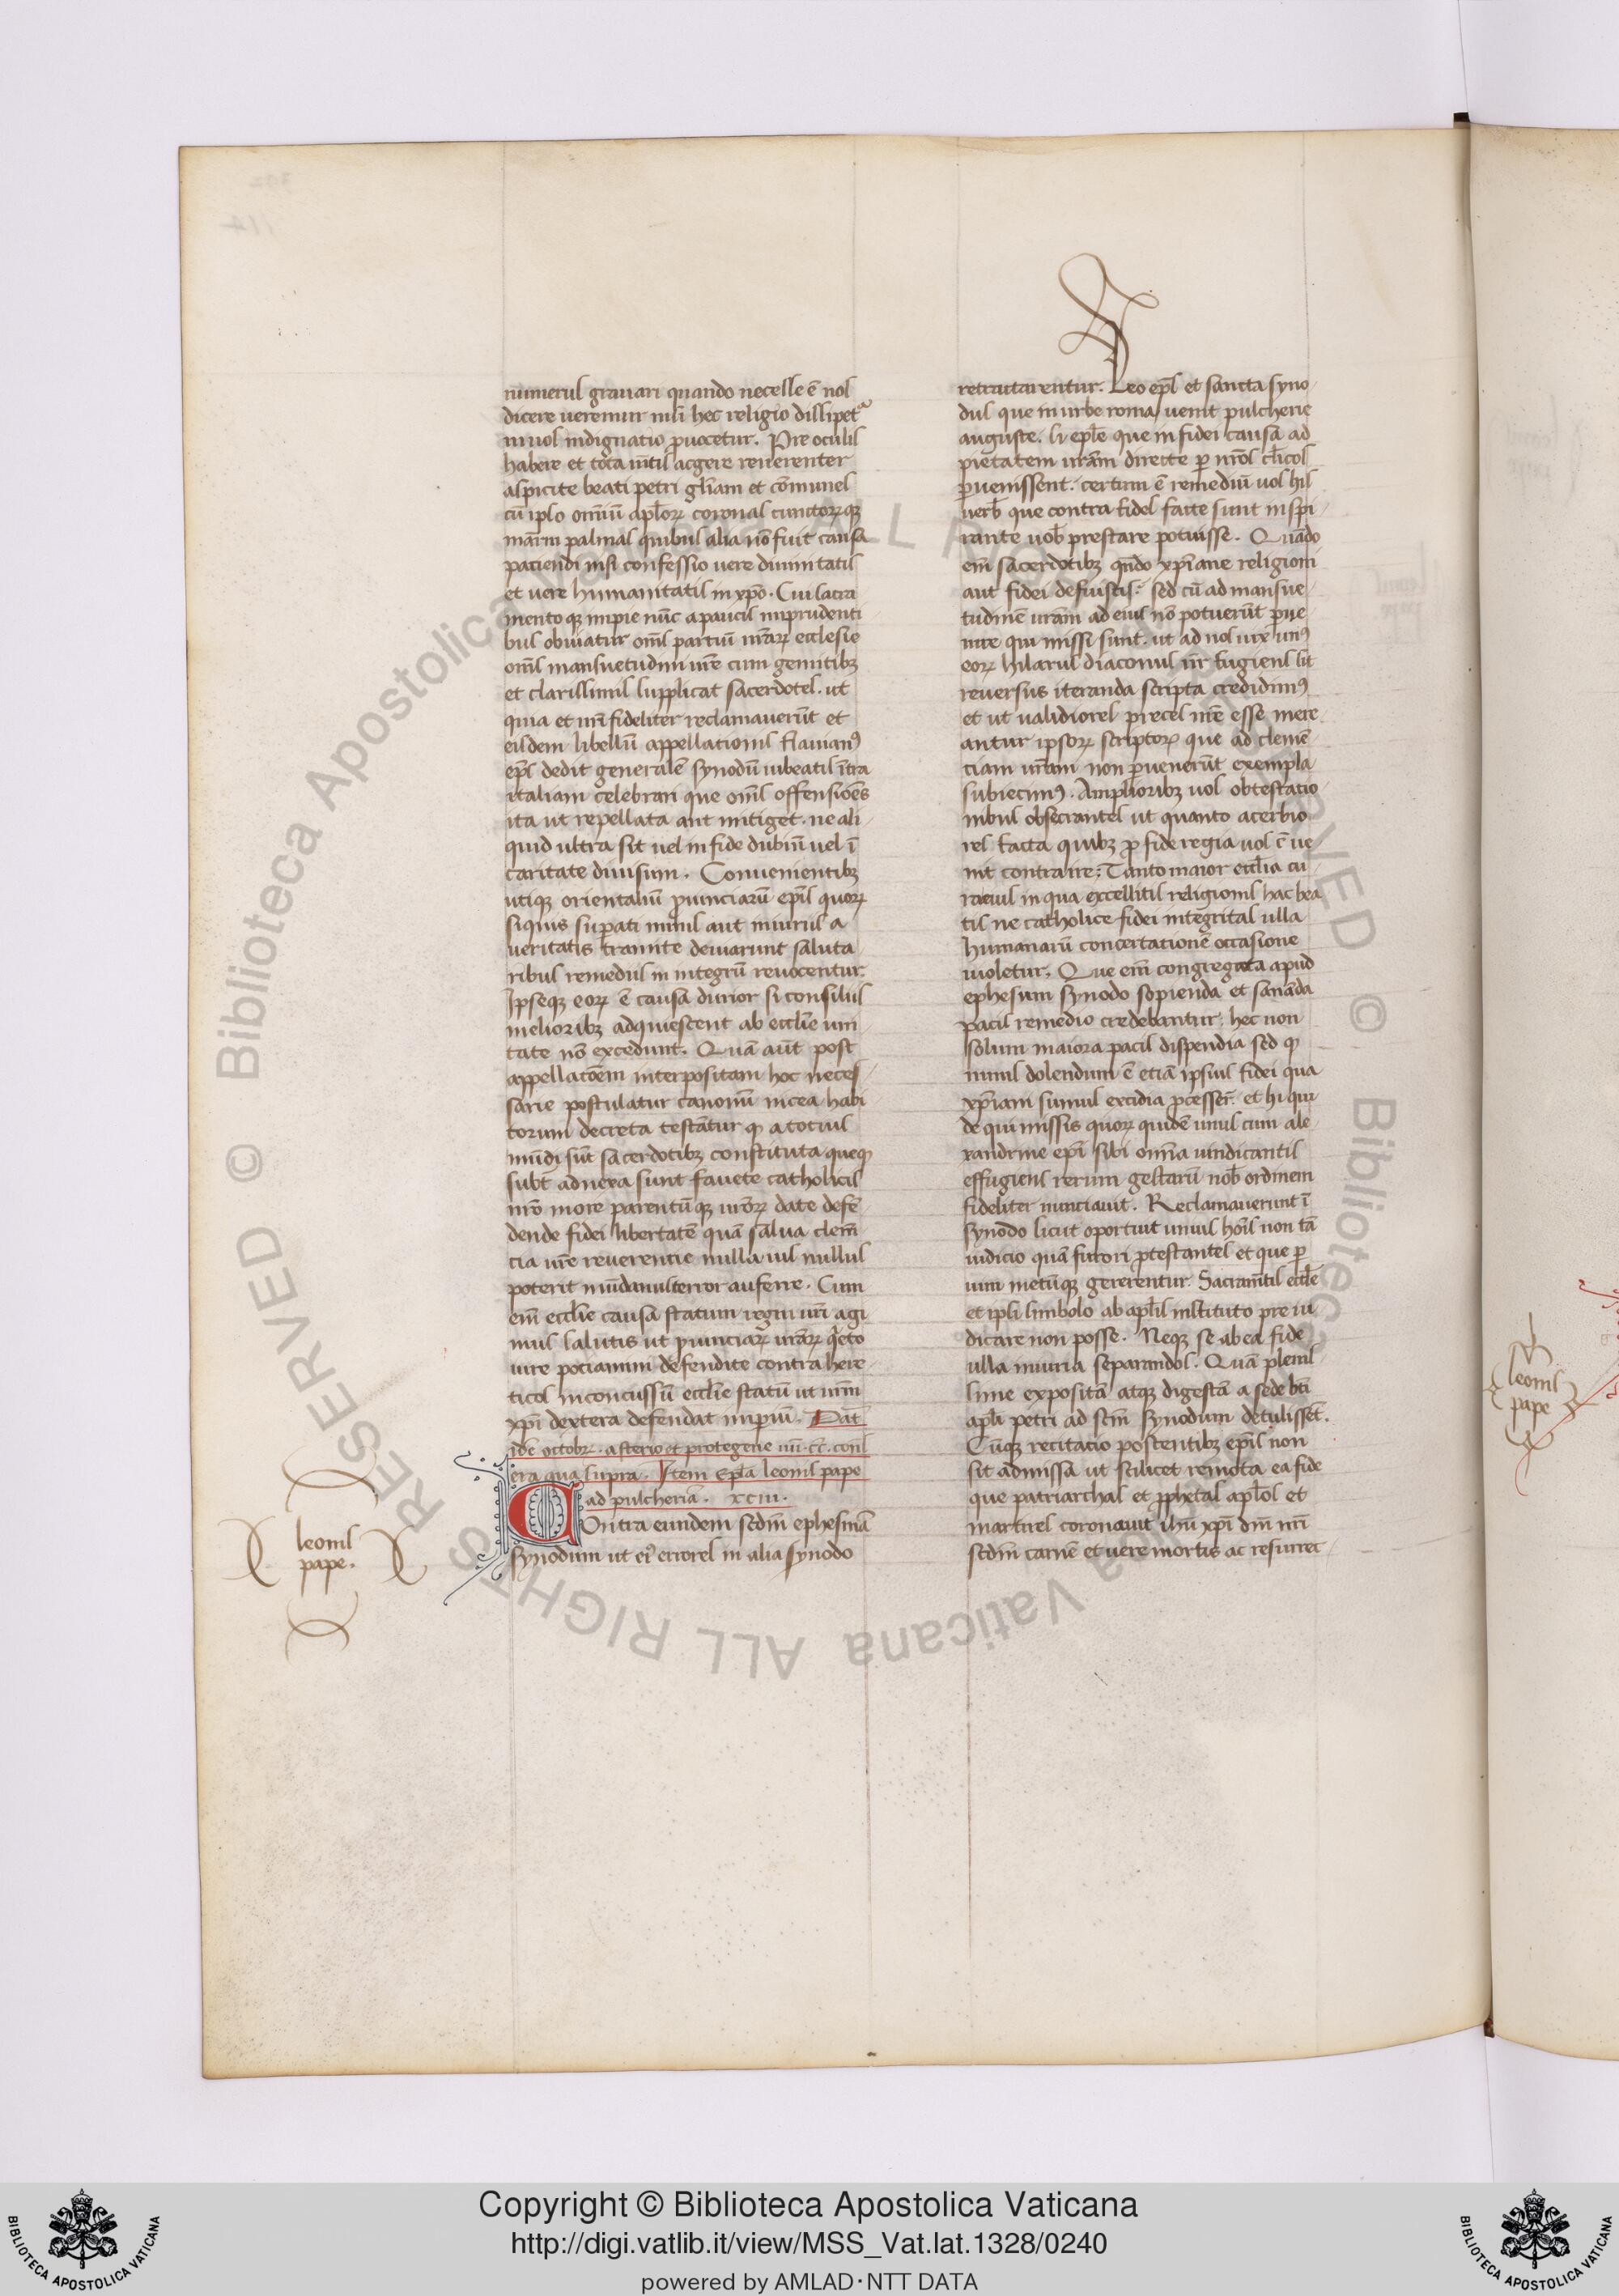 numerus grauari quando necesse ē nos
dicere ueremur nisi hec religio dissipet᷑
in uos indignatio ꝓuocetur. Pre oculis
habere et tota mētis acgere reuerenter
aspicite beati petri gl̄iam et cōmunes
cū ipso omniū apl̄oꝝ coronas cunctoꝝqꝫ
mr̄m palmas quibus alia nō fuit causa
patiendi nisi confessio uere diuinitatis
et uere humanitatis in xp̄o. Cui sacra
mento qꝫ impie nūc a paucis imprudenti
bus obuiatur om̄s partiū nr̄aꝝ ecclesie
om̄s mansuetudini ur̄e cum gemitibꝫ
et clarissimis supplicat sacerdotes. ut
quia et nr̄i fideliter reclamauerūt et
eisdem libellū appellationis flauianꝰ
ep̄s dedit generalē synodū iubeatis ītra
italiam celebrari que om̄s offensiones
ita ut repellata aut mitiget. ne ali
quid ultra sit uel in fide dubiū uel ī
caritate diuisum. Conuenientibꝫ
utiqꝫ orientaliū ꝓuinciarū ep̄is quoꝝ
siquis suꝑati minis aut iniuriis a
ueritatis tramite deuiarunt saluta
ribus remediis in integrū reuocentur.
Ipseqꝫ eoꝝ ē causa durior si consiliis
melioribꝫ adquiescent ab eccl̄ie uni
tate nō excedunt. Quā aūt post
appellatōem interpositam hoc neces
sarie postulatur canonū nicea habi
torum decreta testātur qꝫ a totius
mūdi sūt sacerdotibꝫ constituta queqꝫ
subt̄ adnexa sunt fauete catholicis
nr̄o more parentūqꝫ ur̄oꝝ date defē
dende fidei libertatē quā salua clem̄
cia ur̄e reuerentie nulla uis nullus
poterit mūdanus terror auferre. Cum
em̄ eccl̄ie causa statum regni ur̄i agi
mus salutis ut ꝓuinciaꝝ ur̄aꝝ q̇eto
iure potiamini defendite contra here
ticos inconcussū eccl̄ie statū ut ur̄m
xp̄i dextera defendat imꝑiū. Dat̄
idꝰ octobꝝ. asterio et protegene uū. cc̄. cons̄
era qua supra. Item Epl̄a leonis pape
ad pulcheriā. xciii.
COntra eundem scd̄m ephesinā
synodum ut eiꝰ errores in alia synodo
leonis
pape.
retractarentur. Leo ep̄s et sancta syno
dus que in urbe roma uenit pulcherie
auguste. si epl̄e que in fidei causā ad
pietatem ur̄am directe ꝑ nr̄os cl̄icos
ꝑuenissent. certum ē remediū uos his
uerb̄ que contra fides facte sunt inspi
rante uob̄ prestare potuisse. Quādo
em̄ sacerdotibꝫ qn̄do xp̄iane religioni
aut fidei defuistis: sed cū ad mansue
tudinē ur̄am ad eius nō potuerūt ꝑue
nire qui missi sunt. ut ad nos uix unꝰ
eoꝝ hilarus diaconus nr̄ fugiens sit
reuersus iteranda scripta credidimꝰ
et ut ualidiores preces nr̄e esse mere
antur ipsoꝝ scriptoꝝ que ad clemē
ciam ur̄am non ꝑuenerūt exempla
subiecimꝰ. Amplioribꝫ uos obtestatio
nibus obsecrantes ut quanto acerbio
res facta quibꝫ ꝓ fide regia uos cōue
nit contraire: Tanto maior eccl̄ia cu
ra eius in qua excellitis religionis hac bea
tis ne catholice fidei integritas ulla
humanarū concertationē occasione
uioletur. Que em̄ congregata apud
ephesum synodo sopienda et sanāda
pacis remedio credebantur: hec non
solum maiora pacis dispendia sed qꝫ
nimis dolendum ē etiā ipsius fidei qua
xp̄iani sumus excidia ꝓcesser̄. et hi qui
de qui missis quoꝝ quidē unus cum ale
xandrine ep̄i sibi om̄ia uindicantis
effugiens rerum gestarū nob̄ ordinem
fideliter nunciauit. Reclamauerunt ī
synodo licut oportuit unius hoīs non tā
iudicio quā furori ꝓtestantes et que ꝑ
uim metūqꝫ gererentur Sacramētis eccl̄e
et ipsi simbolo ab apl̄is instituto pre iu
dicare non posse. Neqꝫ se ab ea fide
ulla iniuria separandos. Quā plenis
sime expositā atqꝫ digestā a sede bt̄i
apl̄i petri ad scm̄ synodum detulissēt.
Cūqꝫ recitatio poscentibꝫ ep̄is non
sit admissa ut scilicet remota ea fide
que patriarchas et ꝓphetas apl̄os et
martires coronauit ih̄u xp̄i dn̄i nr̄i
scd̄m carnē et uere mortis ac resurrec
leonis
pape
Copyright © Biblioteca Apostolica Vaticana
http://digi.vatlib.it/view/MSS_Vat.lat.1328/0240
powered by AMLAD·NTT DATA